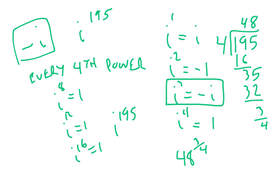 -i
i¹⁹⁵
EVERY 4TH POWER
i⁸ = 1
i¹² = 1
i¹⁹⁵
i¹⁶ = 1
i¹ = i
i² = -1
i³ = -i
i⁴ = 1
48 3/4
48
4 195
16
35
32
3
4